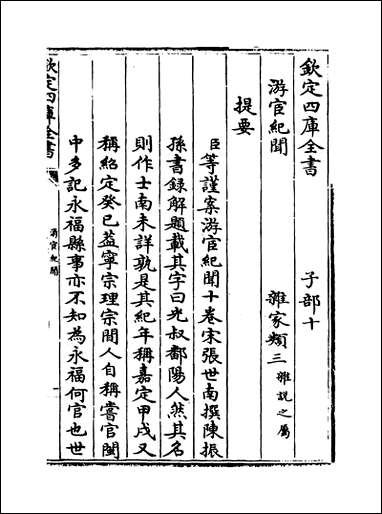 欽定四庫全書
子部十
游宦紀聞
雜家類三雜說之屬
提要
臣等謹案游宦紀聞十卷宋張世南撰陳振
孫書録解題載其字曰光叔鄱陽人然其名
則作士南未詳孰是其紀年稱嘉定甲戌又
稱紹定癸巳葢寧宗理宗間人自稱嘗官閩
中多記永福縣事亦不知為永福何官也世
欽定四庫全書
游宦紀聞
一